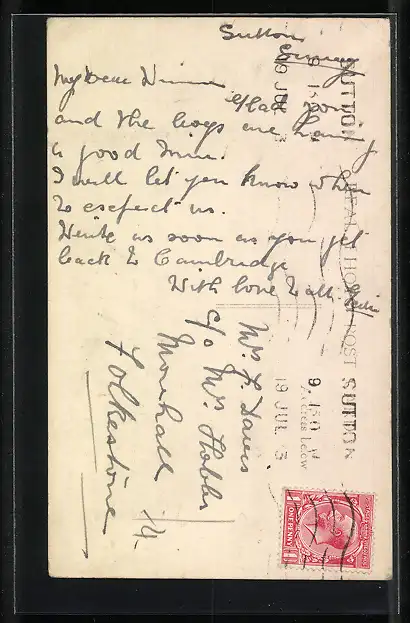 Sutton
Surrey
My Dear Winnie
Glad you
and the boys are having
a good time.
I will let you know when
to expect us.
Write as soon as you get
back to Cambridge
With love to all
Mrs F Davis
c/o Mrs Hobbs
Marshall St.
Folkestone
SUTTON
9.15 PM
19 JUL
SUTTON
9.15 PM
19 JUL
POST
ONE PENNY